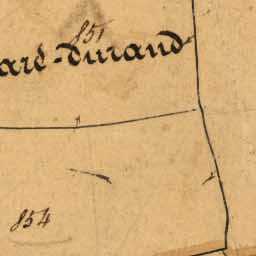 851
ard-durand
854